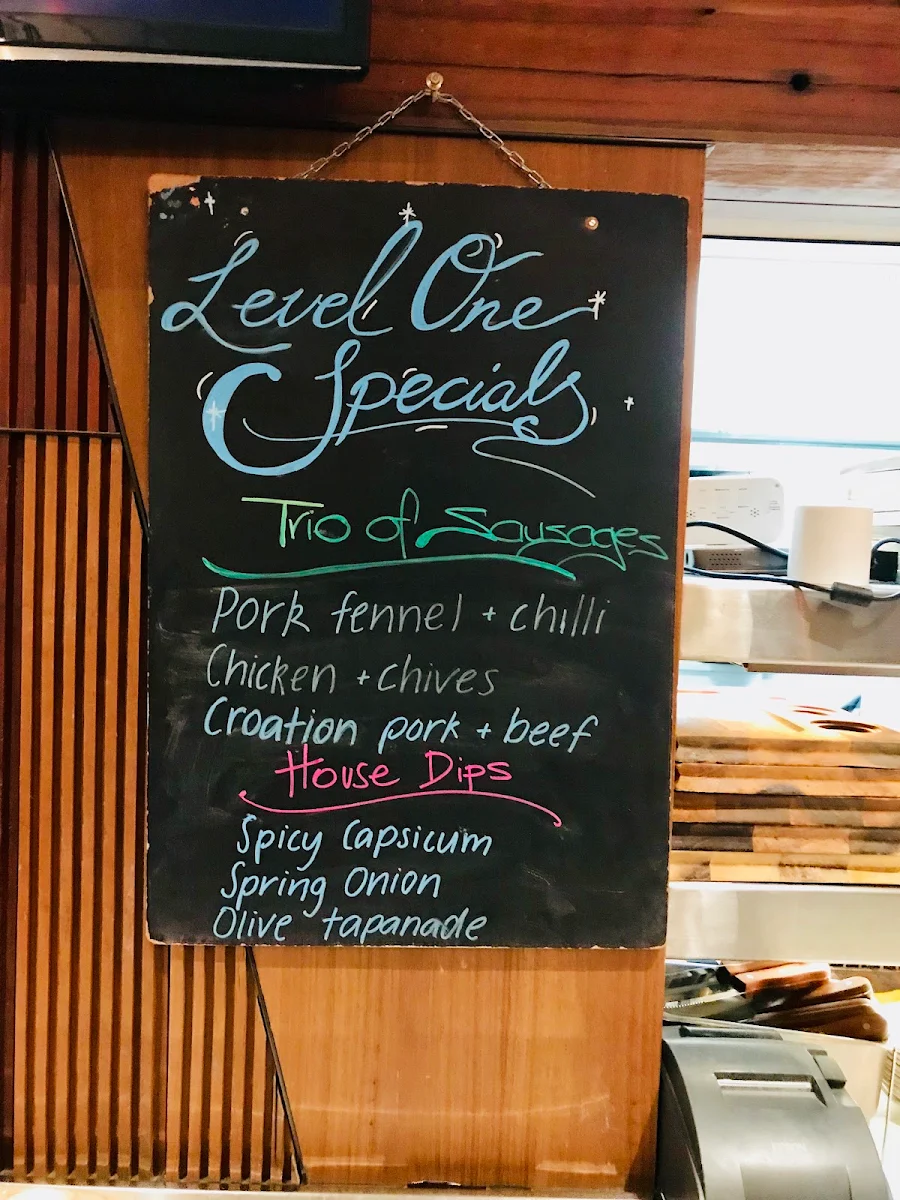 Level One
Specials
Trio of Sausages
Pork fennel + chilli
Chicken + chives
Croation pork + beef
House Dips
Spicy Capsicum
Spring Onion
Olive tapanade